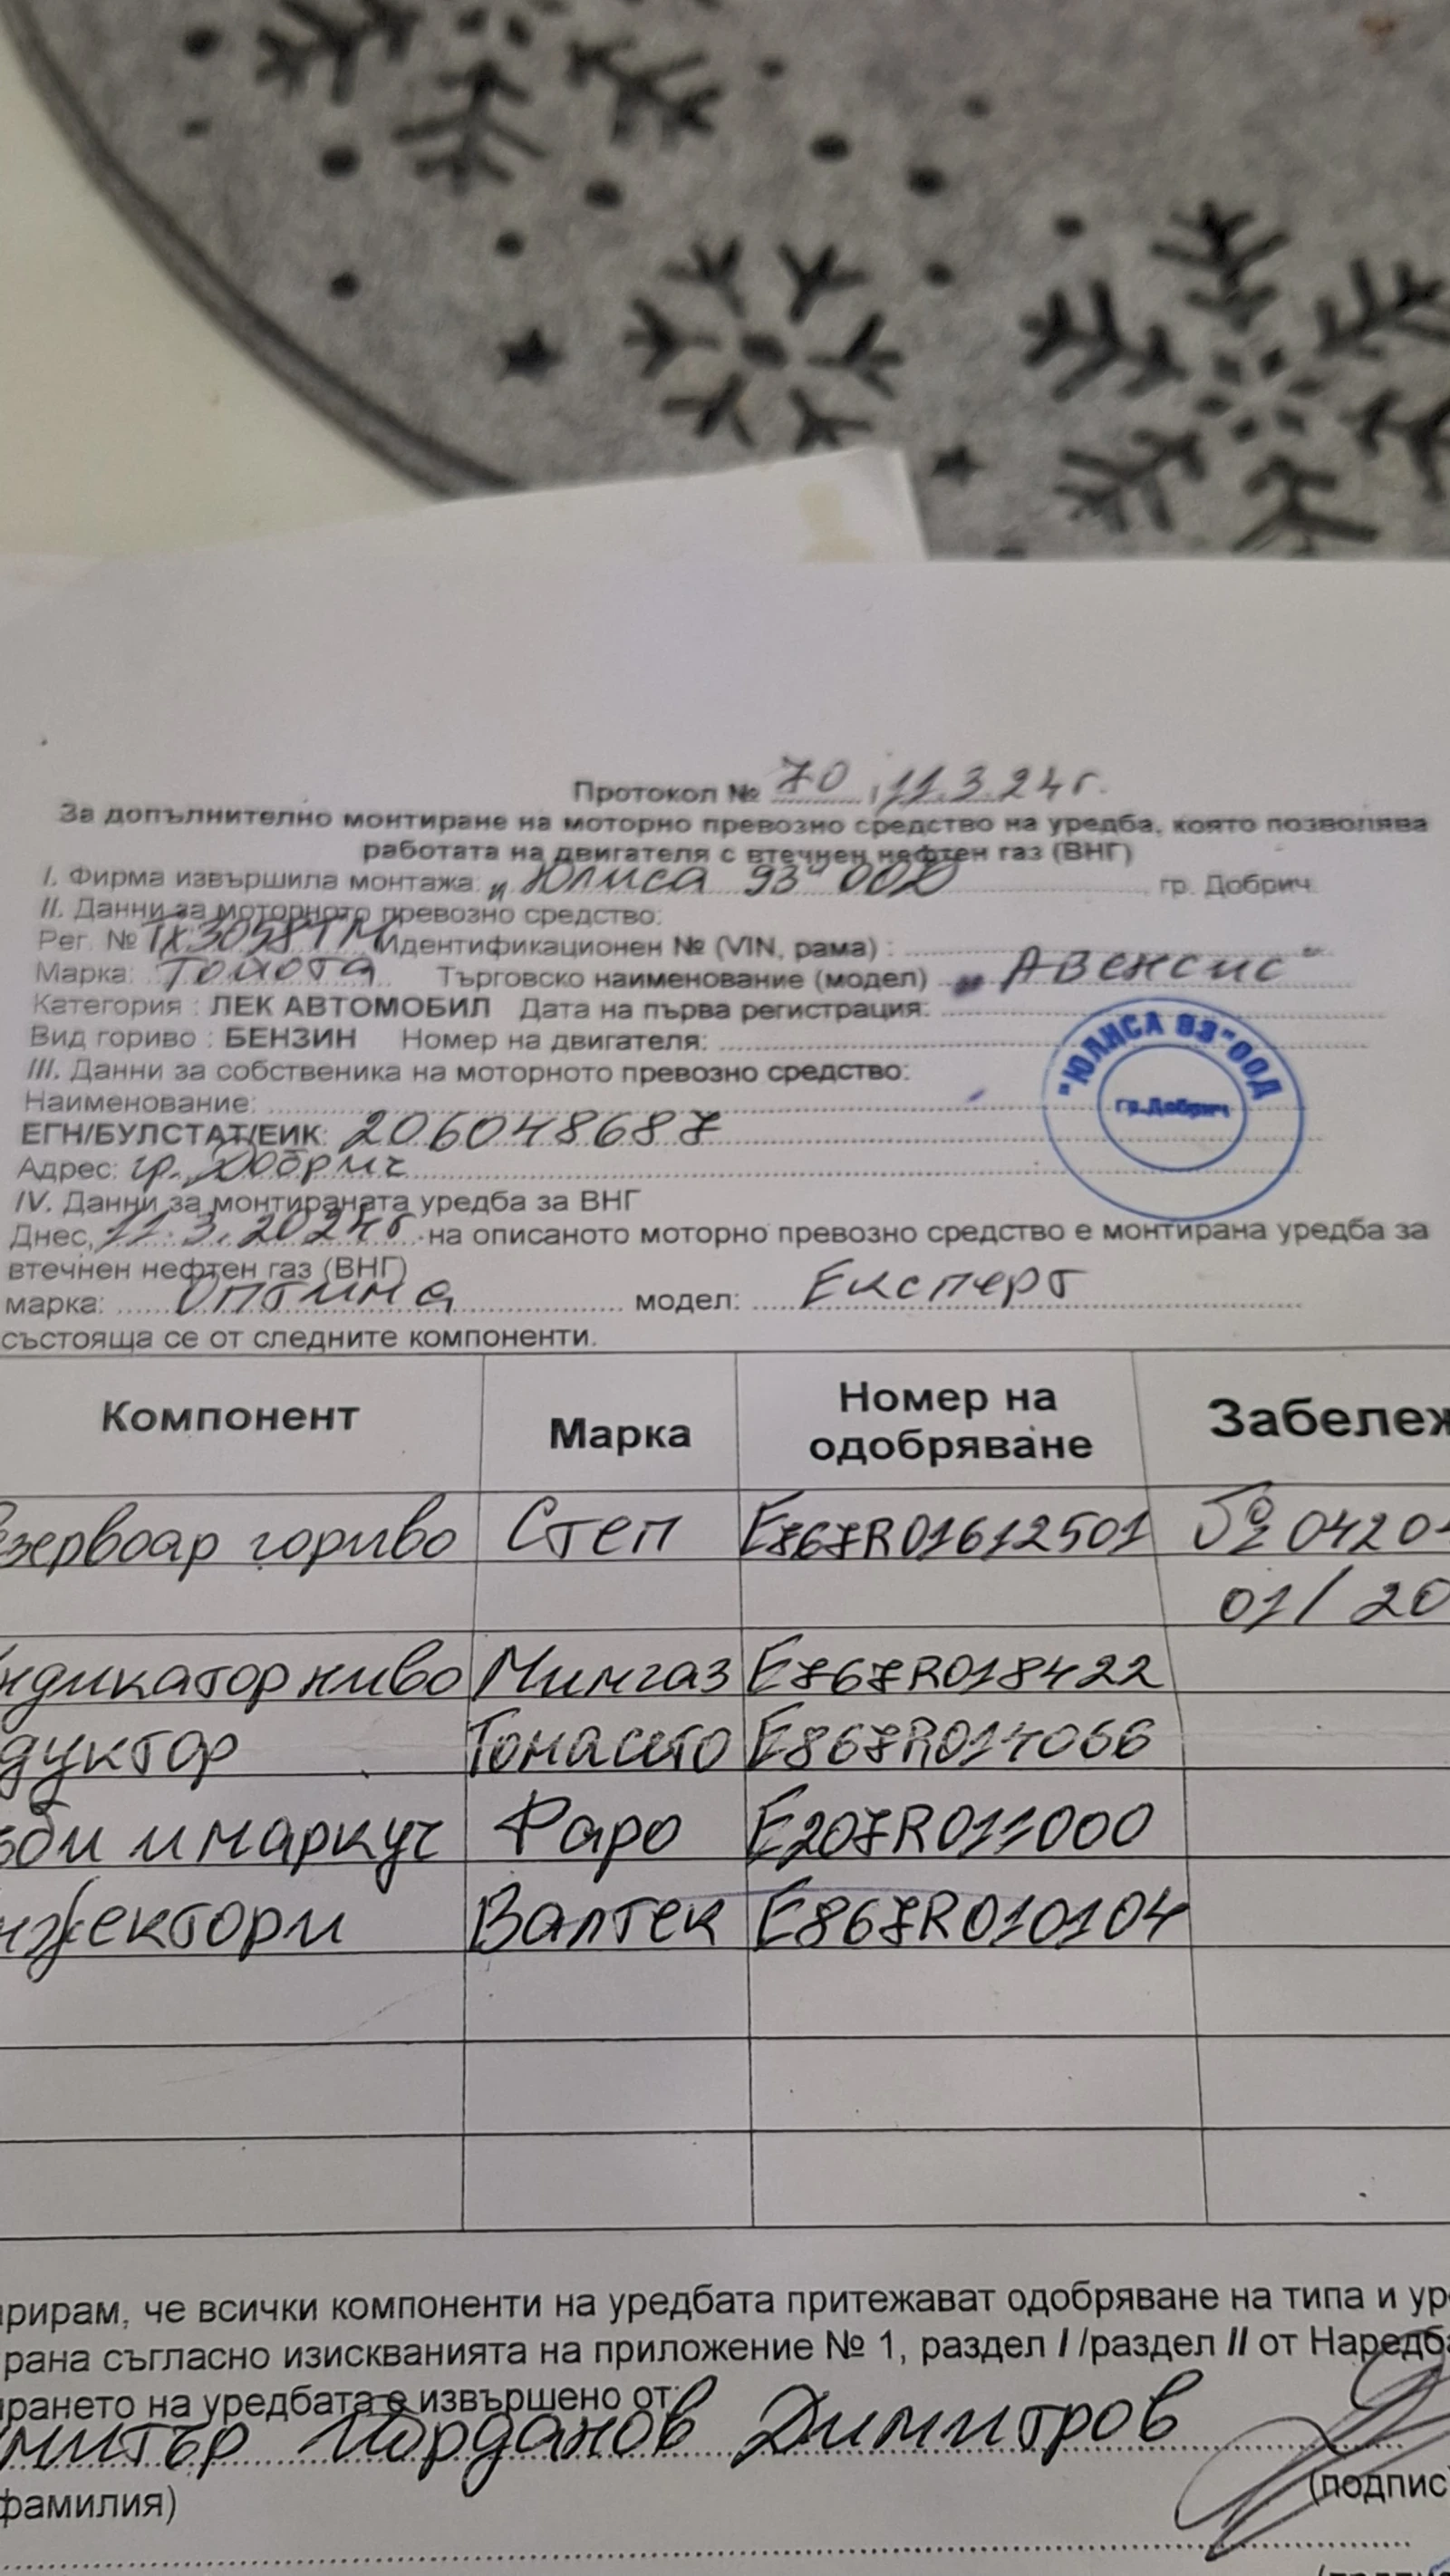 Протокол № 70, 11.3.24г.
За допълнително монтиране на моторно превозно средство на уредба, която позволява
работата на двигателя с втечнен нефтен газ (ВНГ)
I. Фирма извършила монтажа: „Юлиса 93" ООД гр. Добрич
II. Данни за моторното превозно средство:
Рег. № ТХ3058ТМ Идентификационен № (VIN, рама) :
Марка: Тойота Търговско наименование (модел) „Авенсис"
Категория : ЛЕК АВТОМОБИЛ Дата на първа регистрация:
Вид гориво : БЕНЗИН Номер на двигателя:
"ЮЛИСА 93" ООД
гр.Добрич
III. Данни за собственика на моторното превозно средство:
Наименование:
ЕГН/БУЛСТАТ/ЕИК: 206048687
Адрес: гр. Добрич
IV. Данни за монтираната уредба за ВНГ
Днес, 11.3.2024г на описаното моторно превозно средство е монтирана уредба за
втечнен нефтен газ (ВНГ)
марка: Оптима модел: Експерт
състояща се от следните компоненти.
Компонент Марка Номер на одобряване Забележ
зервоар гориво Степ E767R01612501 № 0420
01/20
ндикатор ниво Мимгаз E767R018422
дуктор Томасето E867R014066
ъби и маркуч Фаро E207R011000
нжектори Валтек E867R010104
рирам, че всички компоненти на уредбата притежават одобряване на типа и ур
рана съгласно изискванията на приложение № 1, раздел I /раздел II от Наредба
рането на уредбата е извършено от:
митър Йорданов Димитров
фамилия) (подпис)